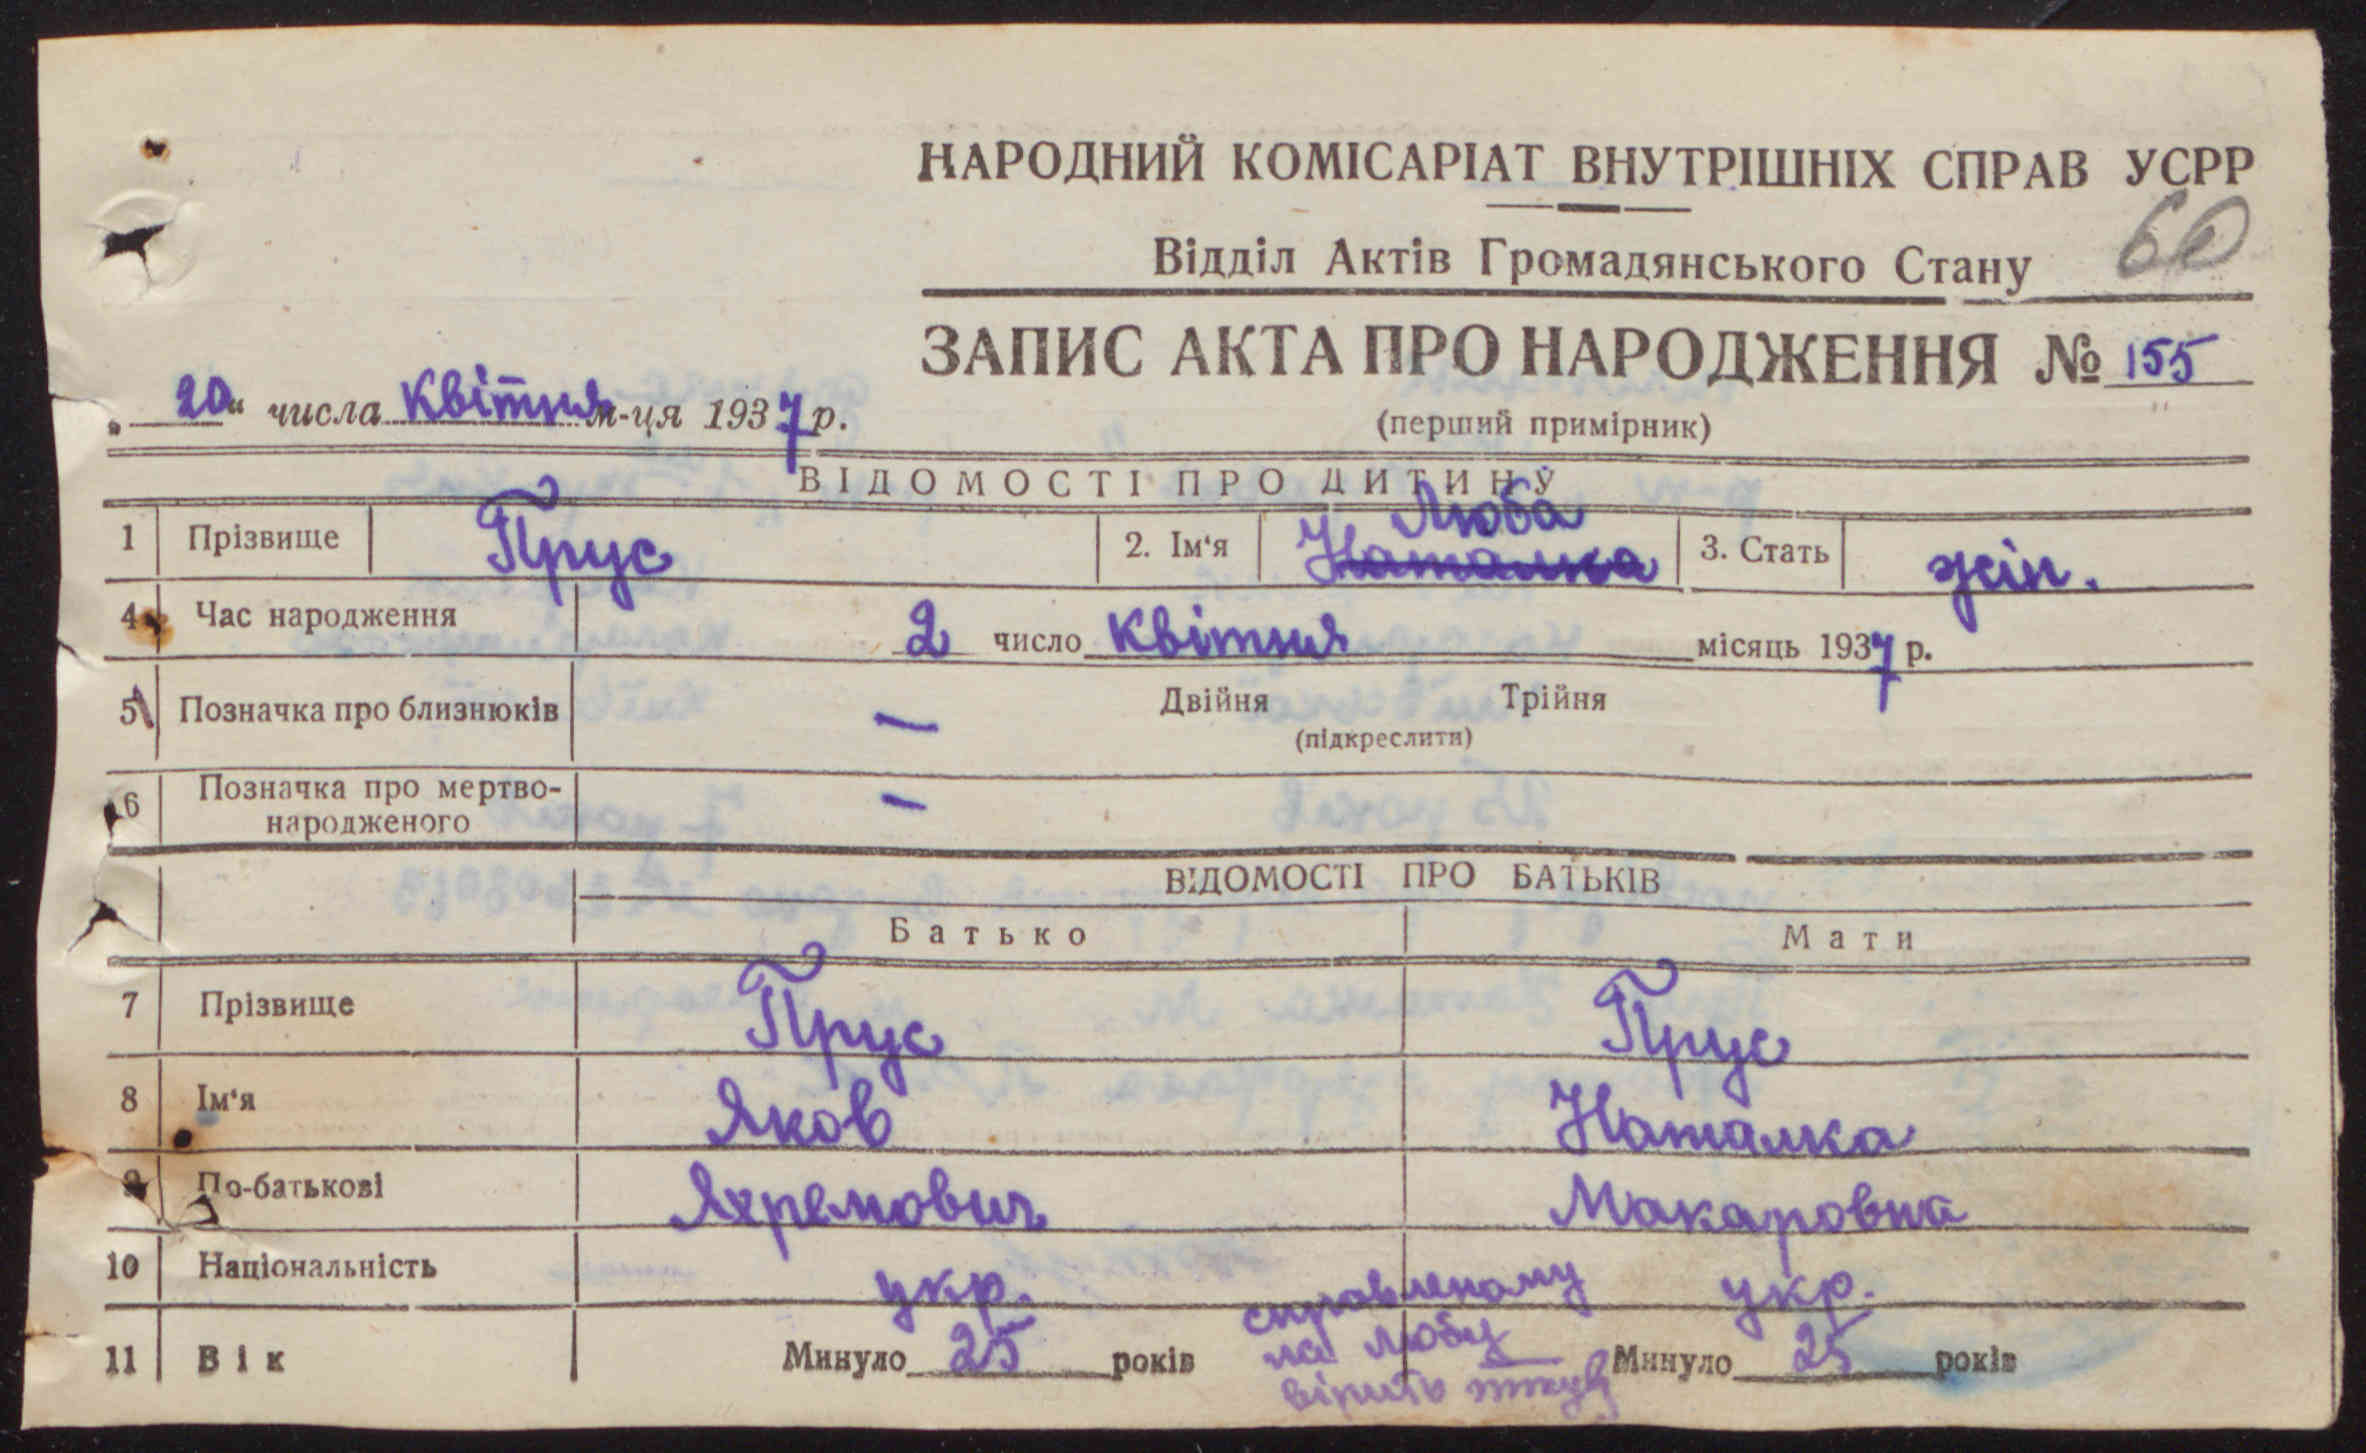 НАРОДНИЙ КОМІСАРІАТ ВНУТРІШНІХ СПРАВ УСРР
60
Відділ Актів Громадянського Стану
ЗАПИС АКТА ПРО НАРОДЖЕННЯ № 155
(перший примірник)
„ 20 “ числа Квітня м-ця 1937 р.
ВІДОМОСТІ ПРО ДИТИНУ
1 Прізвище Прус 2. Ім‘я Люба Наталка 3. Стать жін.
4 Час народження 2 число Квітня місяць 1937 р.
5 Позначка про близнюків — Двійня Трійня
(підкреслити)
6 Позначка про мертво-
народженого —
ВІДОМОСТІ ПРО БАТЬКІВ
Батько Мати
7 Прізвище Прус Прус
8 Ім‘я Яков Наталка
9 По-батькові Яхремович Макаровна
10 Національність укр. укр.
11 Вік Минуло 25 років Минуло 25 років
справленому
на Любу
вірить